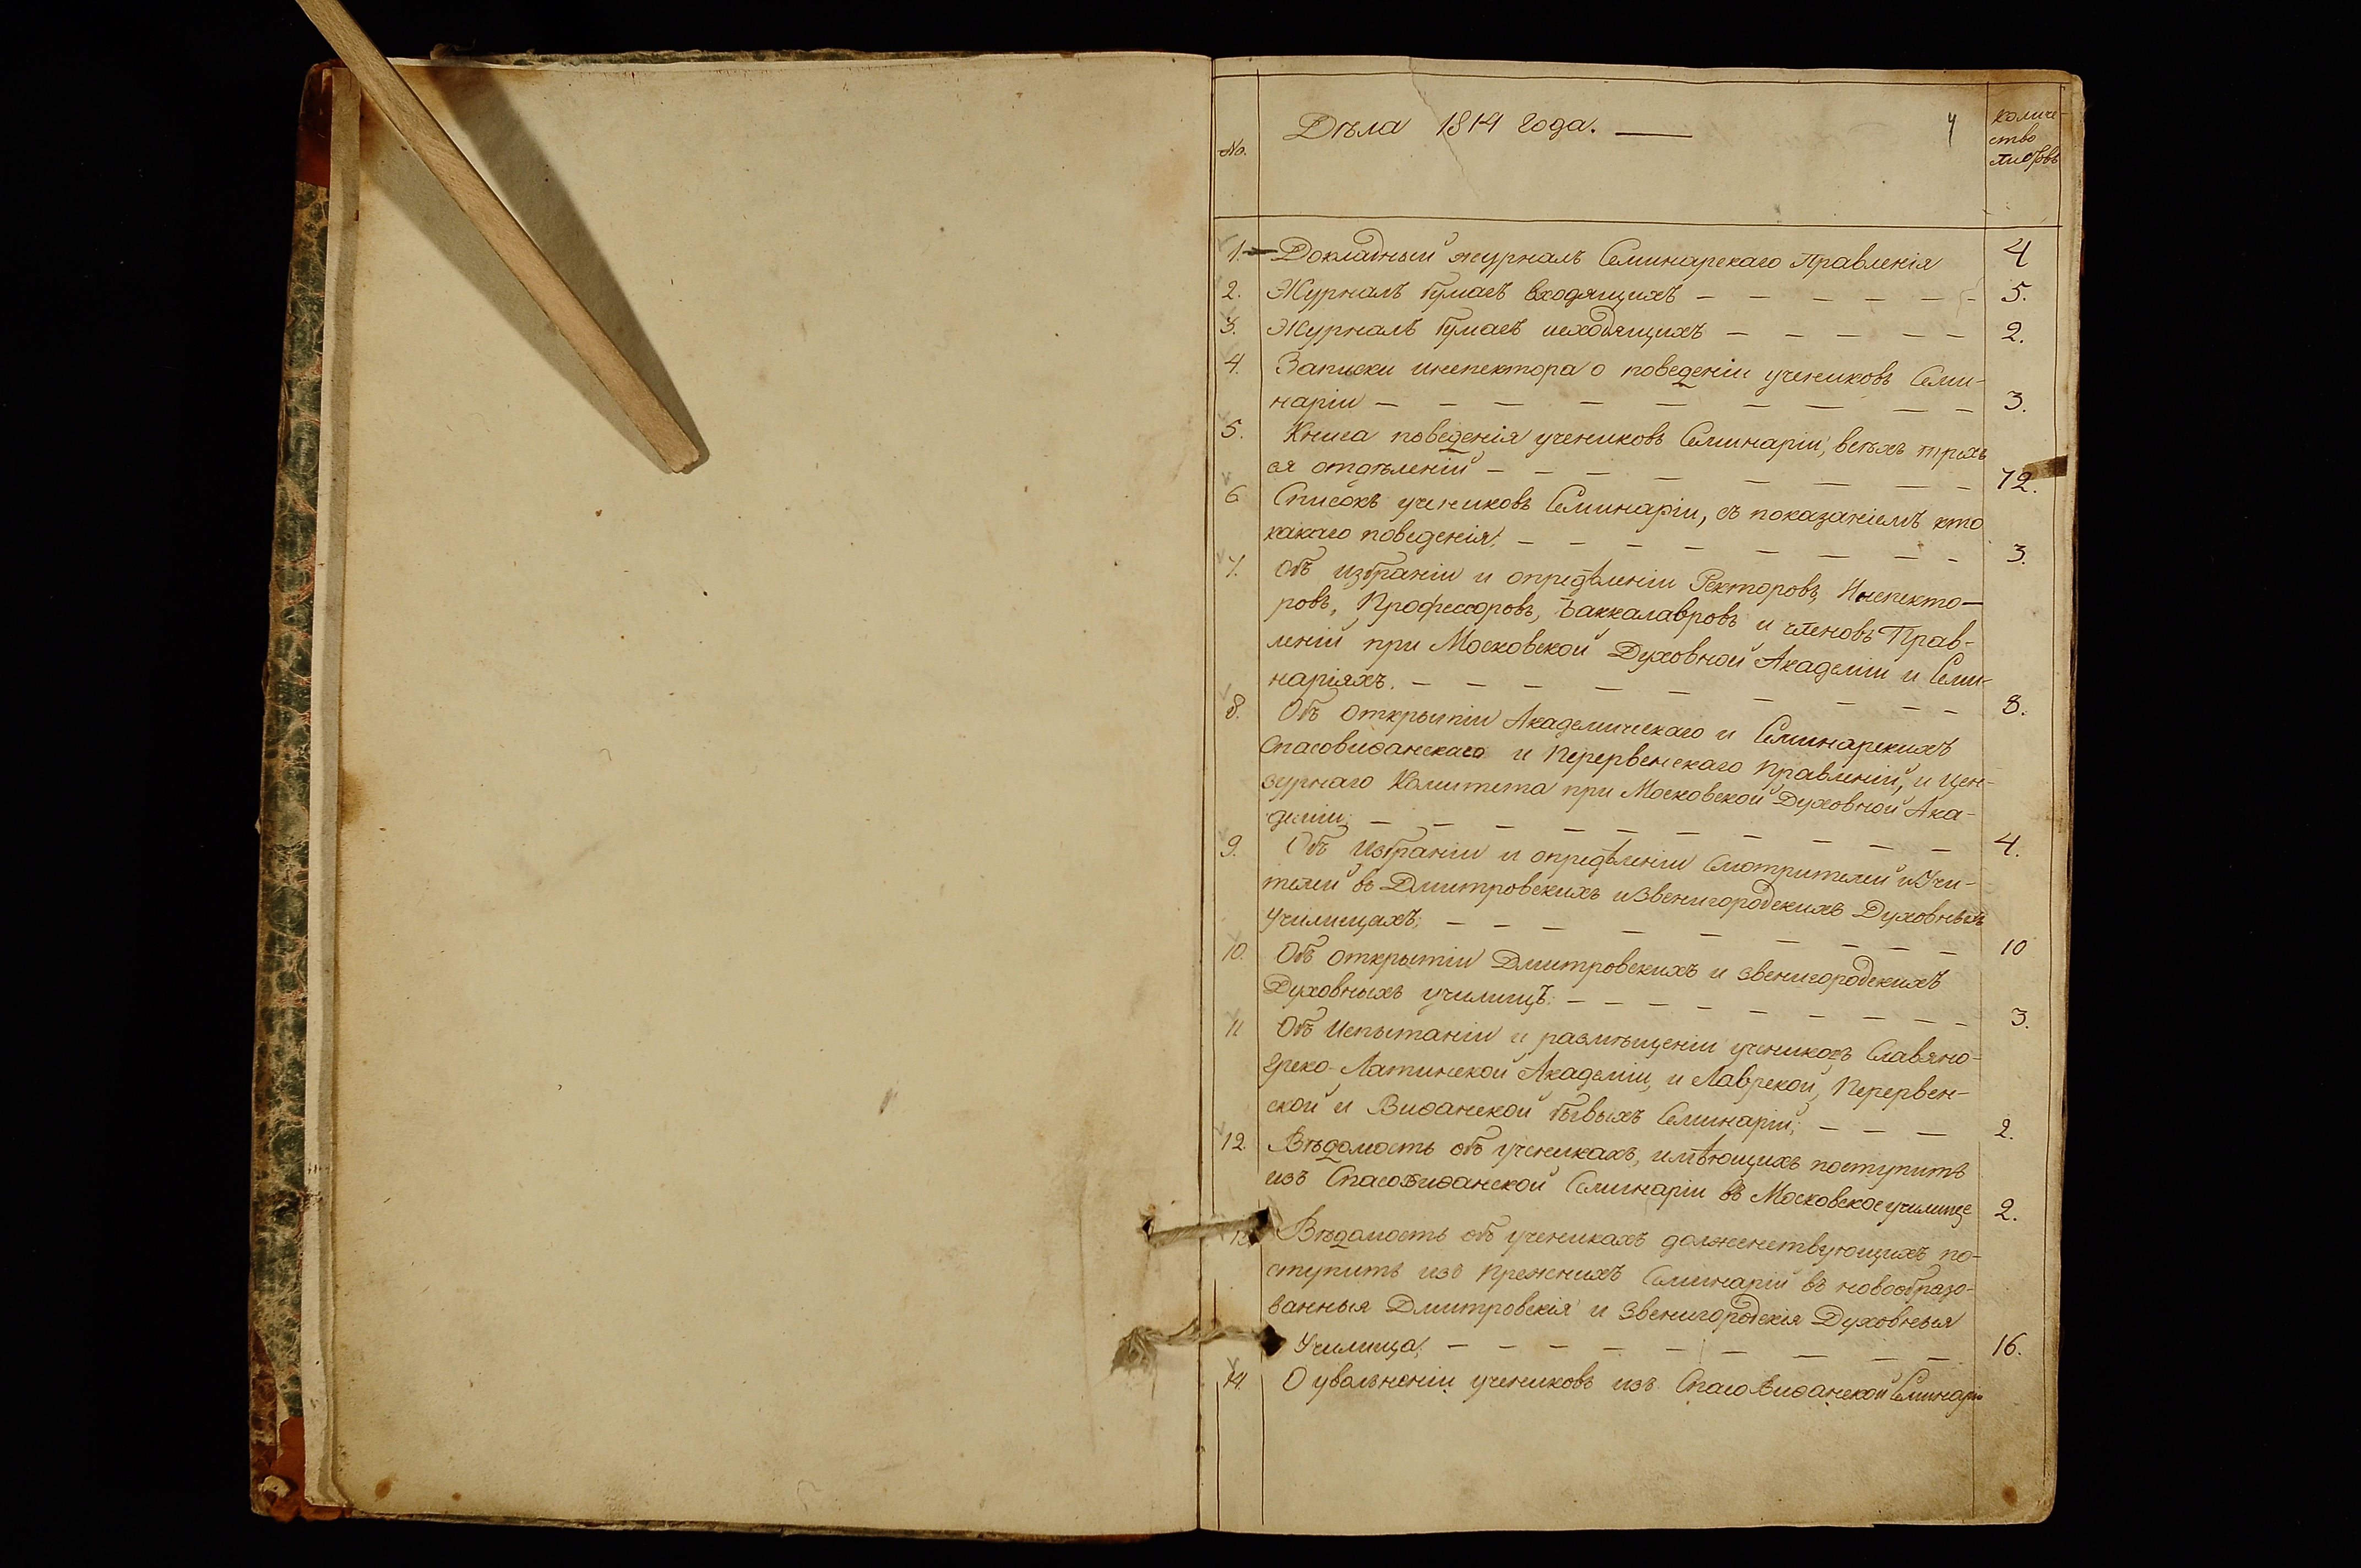 No. Дѣла 1814 года. — 4 количе-
ство
листовъ
1. Докладный журналъ Семинарскаго Правленія 4
2. Журналъ бумагъ входящихъ — — — — — — 5.
3. Журналъ бумагъ исходящихъ — — — — — 2.
4. Записки инспектора о поведеніи учениковъ Семи-
наріи — — — — — — — — — 3.
5. Книга поведенія учениковъ Семинаріи, всѣхъ трехъ
ея отдѣленій — — — — — — — — 72.
6 Списокъ учениковъ Семинаріи, съ показаніемъ кто
какаго поведенія; — — — — — — — — 3.
7. Объ избраніи и опредѣленіи Ректоровъ, Инспекто-
ровъ, Профессоровъ, Баккалавровъ и членовъ Прав-
леній при Московской Духовной Академіи и Семи-
наріяхъ. — — — — — — — — — 8.
8. Объ открытіи Академическаго и Семинарскихъ
Спасовиѳанскаго и Перервенскаго Правленій, и Цен-
зурнаго Комитета при Московской Духовной Ака-
деміи; — — — — — — — — — — 4.
9. Объ избраніи и опредѣленіи Смотрителей и Учи-
телей въ Дмитровскихъ и Звенигородскихъ Духовныхъ
Училищахъ; — — — — — — — — — 10
10. Объ открытіи Дмитровскихъ и Звенигородскихъ
Духовныхъ училищъ. — — — — — — — — — — 3.
11 Объ Испытаніи и размѣщеніи учениковъ Славяно-
греко-Латинской Академіи, и Лаврской, Перервен-
ской и Виѳанской бывыхъ Семинарій; — — — 2.
12. Вѣдомость объ ученикахъ, имѣющихъ поступить
изъ Спасовиѳанской Семинаріи въ Московское училище 2.
13. Вѣдомость объ ученикахъ долженствующихъ по-
ступить изъ прежнихъ Семинарій въ новообразо-
ванныя Дмитровскія и Звенигородскія Духовныя
Училища; — — — — — — — — — 16.
14. О увольненіи учениковъ изъ Спасовиѳанской Семинаріи